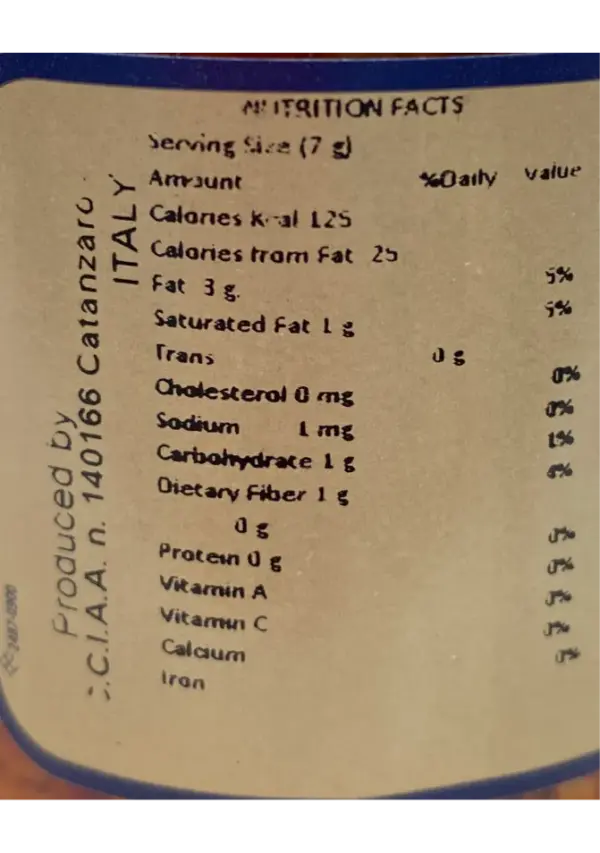 NUTRITION FACTS
Serving Size (7 g)
Amount %Daily value
Calories Kcal 125
Calories from Fat 25
Fat 3 g. 5%
Saturated Fat 1 g 5%
Trans 0 g
Cholesterol 0 mg 0%
Sodium 1 mg 0%
Carbohydrate 1 g 1%
Dietary Fiber 1 g 4%
0 g
Protein 0 g 0%
Vitamin A 0%
Vitamin C 0%
Calcium 0%
Iron 0%
Produced by
C.I.A.A. n. 140166 Catanzaro
ITALY